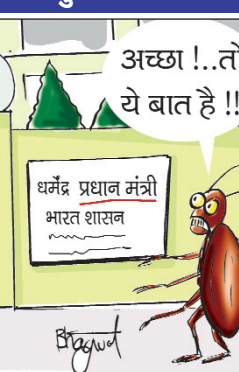 अच्छा !..तो
ये बात है !!
धर्मेंद्र प्रधान मंत्री
भारत शासन
Bhagwat